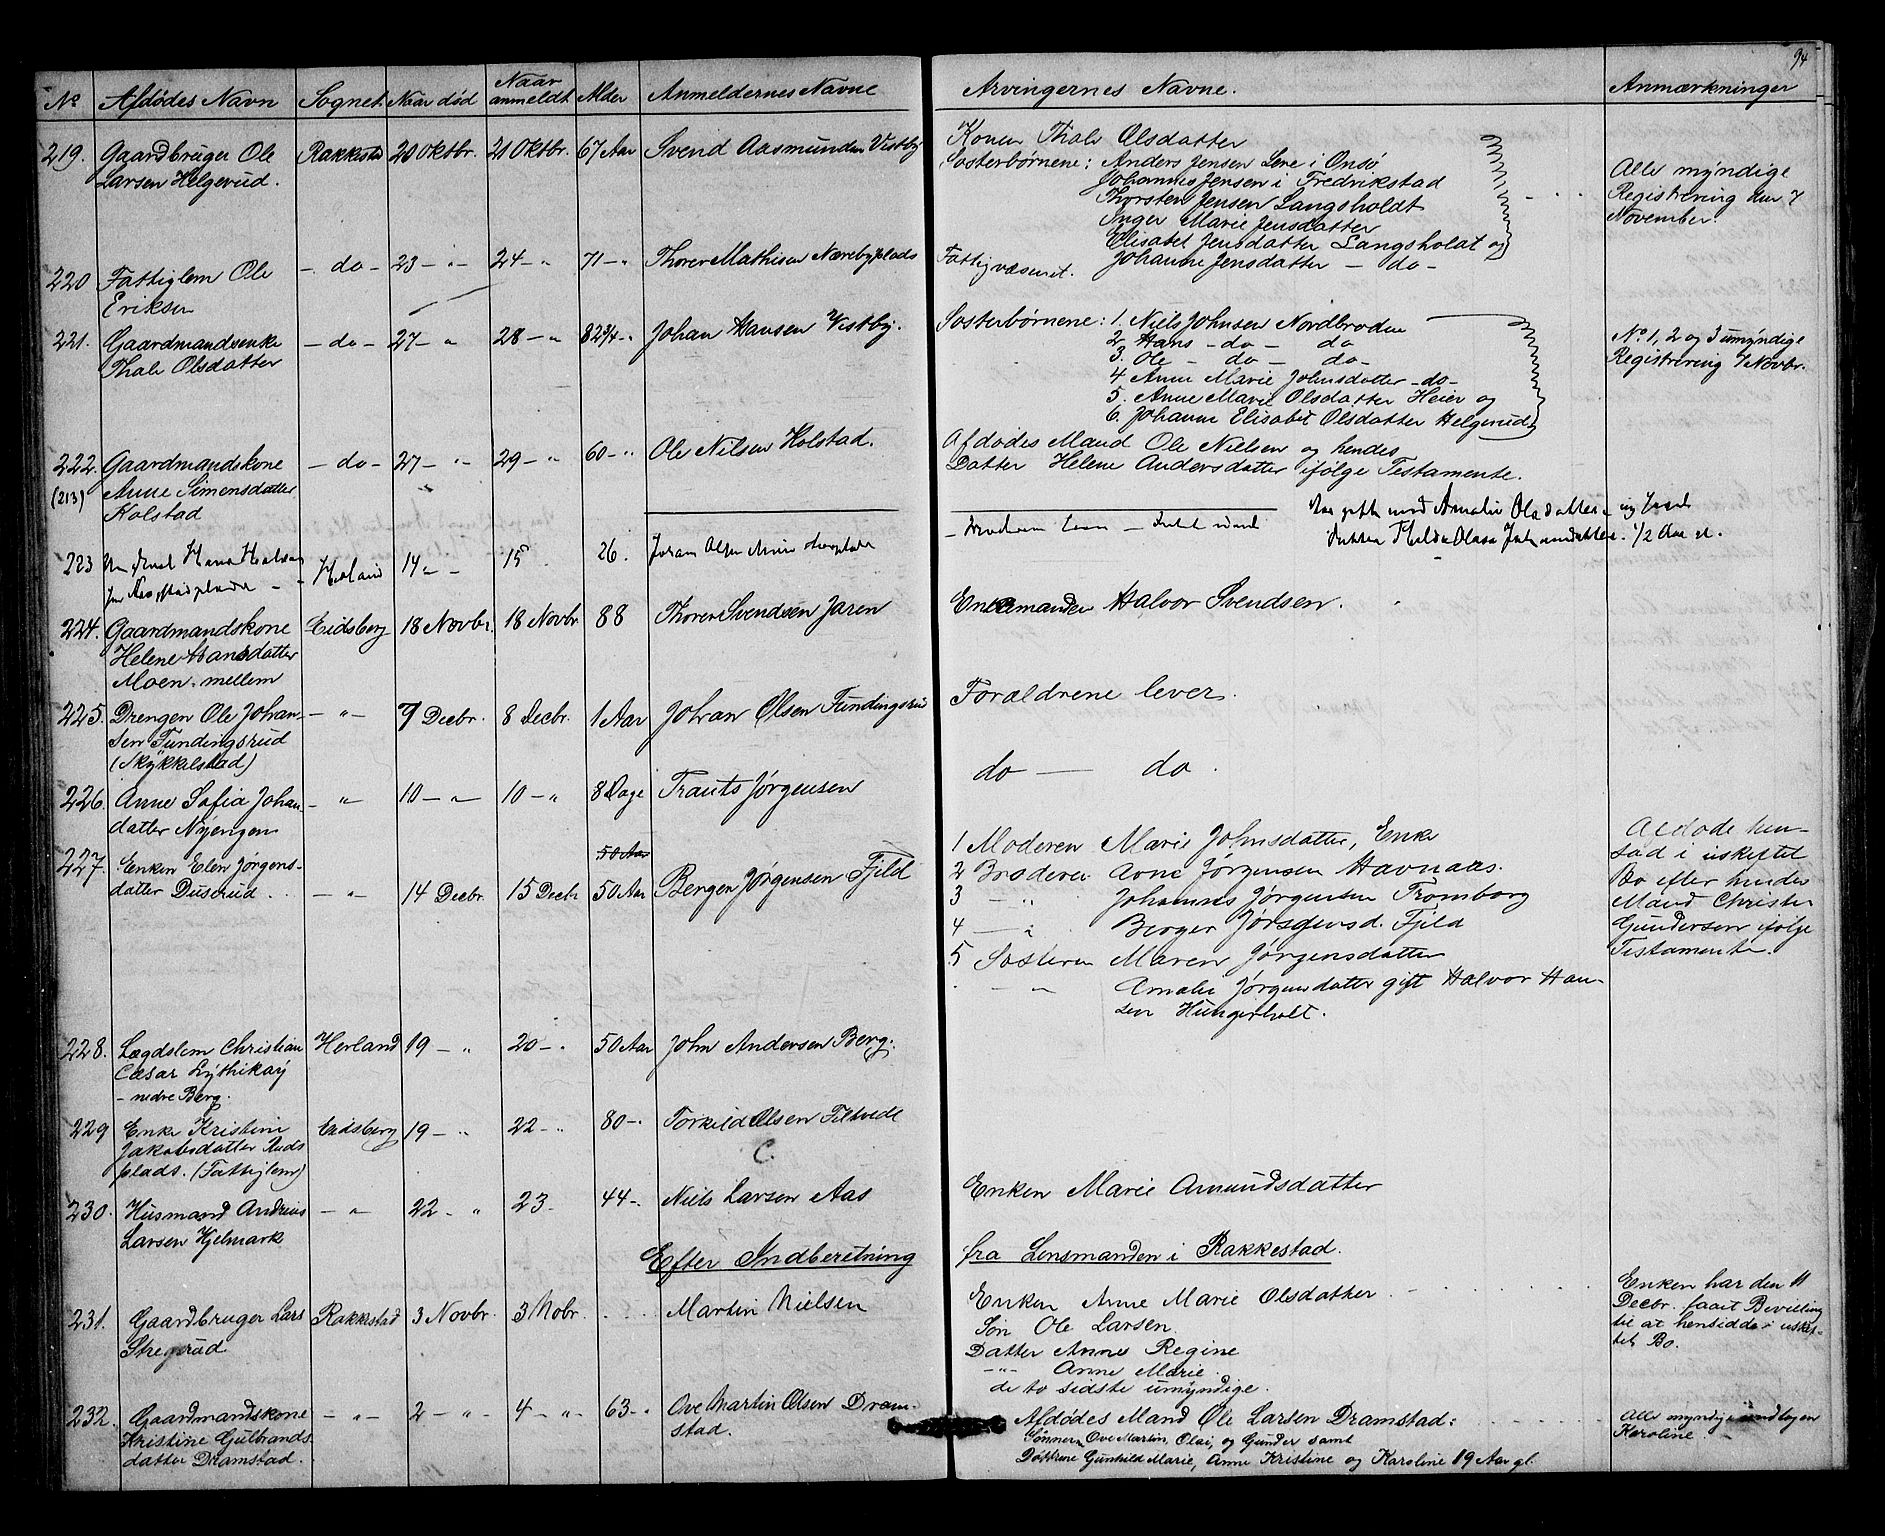 94
No Afdødes Navn Sognet. Naar død Naar anmeldt Alder Anmeldernes Navne Arvingernes Navne. Anmærkninger
219. Gaardbruger Ole Rakkestad 20 Oktbr. 21 Oktbr. 67 Aar Svend Aasmundsen Vistby Konen Thale Olsdatter
Larsen Helgerud. Søsterbørnene: Anders Jensen Lere i Onsø Alle myndige
Johannes Jensen i Fredrikstad Registrering den 7
Thorsten Jensen Langsholdt November.
Inger Marie Jensdatter
Elisabet Jensdatter Langsholdt og
Johanne Jensdatter - do -
220 Fattiglem Ole - do - 23 - " - 24 - " 71 - " Thorer Mathisen Nærebyplads Fattigvæsenet.
Eriksen
221. Gaardmandsenke - do - 27 - " 28 - " 82 3/4 - " Johan Hansen Vistby. Søsterbørnene: 1. Niels Johnsen Nordbroden No 1, 2 og 3 umyndige
Thale Olsdatter 2. Hans - do - do Registrering 7 Novbr.
3. Ole - do - do -
4 Anne Marie Johnsdatter - do -
5. Anne Marie Olsdatter Heier og
6. Johanne Elisabet Olsdatter Helgerud.
222. Gaardmandskone - do - 27 - " 29 - " 60 - " Ole Nilsen Kolstad. Afdødes Mand Ole Nielsen og hendes
(213) Anne Simensdatter Datter Helene Andersdatter ifølge Testamente.
Kolstad
Var gift med Amalie Olsdatter
223 Hans Herland 14 - - 15 26. Johan Olsen 1/2 Aar gl.
224. Gaardmandskone Eidsberg 18 Novbr. 18 Novbr 88 Thorer Svendsen Jaren Enkemanden Halvor Svendsen.
Helene Hansdatter
Moen mellem
225. Drengen Ole Johan- - " - 7 Decbr. 8 Decbr. 1 Aar Johan Olsen Fundingsrud Forældrene lever.
sen Fundingsrud
(Skykkelstad)
226. Anne Sofia Johan- - " 10 - " 10 - " 8 Dage Frants Jørgensen do — do.
datter Nyengen
227. Enken Elen Jørgens- 50 Aar 1 Moderen Marie Johnsdatter, Enke Afdøde hen-
datter Dusrud - " - 14 Decbr. 15 Decbr 50 Aar Bergen Jørgensen Fjeld 2 Broderen Arne Jørgensen Havnaas. sad i uskiftet
3 - " Johannes Jørgensen Tromborg Bo efter hendes
4 - " Berger Jørsgensd. Fjeld Mand Christen
5 Søsteren Maren Jørgensdatter Gundersen ifølge
- " Amalie Jørgensdatter gift Halvor Han- Testamente.
sen Hungerholt.
228. Lægdslem Christian Herland 19 - " 20 - " 50 Aar John Andersen Berg.
Cæsar Lythikay
- nedre Berg.
229 Enke Kristine Eidsberg 19 - " 22 - " 80 - " Torkild Olsen Filtvedt
Jakobsdatter Ruds
plads. (Fattiglem) C.
230. Husmand Andreas - " 22 - " 23 - 44 - Niels Larsen Aas Enken Marie Amundsdatter
Larsen Hjelmark
Efter Indberetning fra Lensmanden i Rakkestad.
231. Gaardbruger Lars Rakkestad 3 Novbr. 3 Nobr. Martin Nielsen Enken Anne Marie Olsdatter Enken har den 11
Stegsrud Søn Ole Larsen Decbr. faaet Bevilling
Datter Annes Regine til at hensidde i uskif-
- " - Anne Marie. tet Bo.
de to sidste umyndige.
232. Gaardmandskone - " - 2 - " - 4 - " - 63 - " Ove Martin Olsen Dram- Afdødes Mand Ole Larsen Dramstad: Alle myndige undtagen
Kristine Gulbrands- stad. Sønnerne Ove Martin, Olai, og Gunder samt Karoline.
datter Dramstad. Døttrene Gunhild Marie, Anne Kristine og Karoline 19 Aar gl.